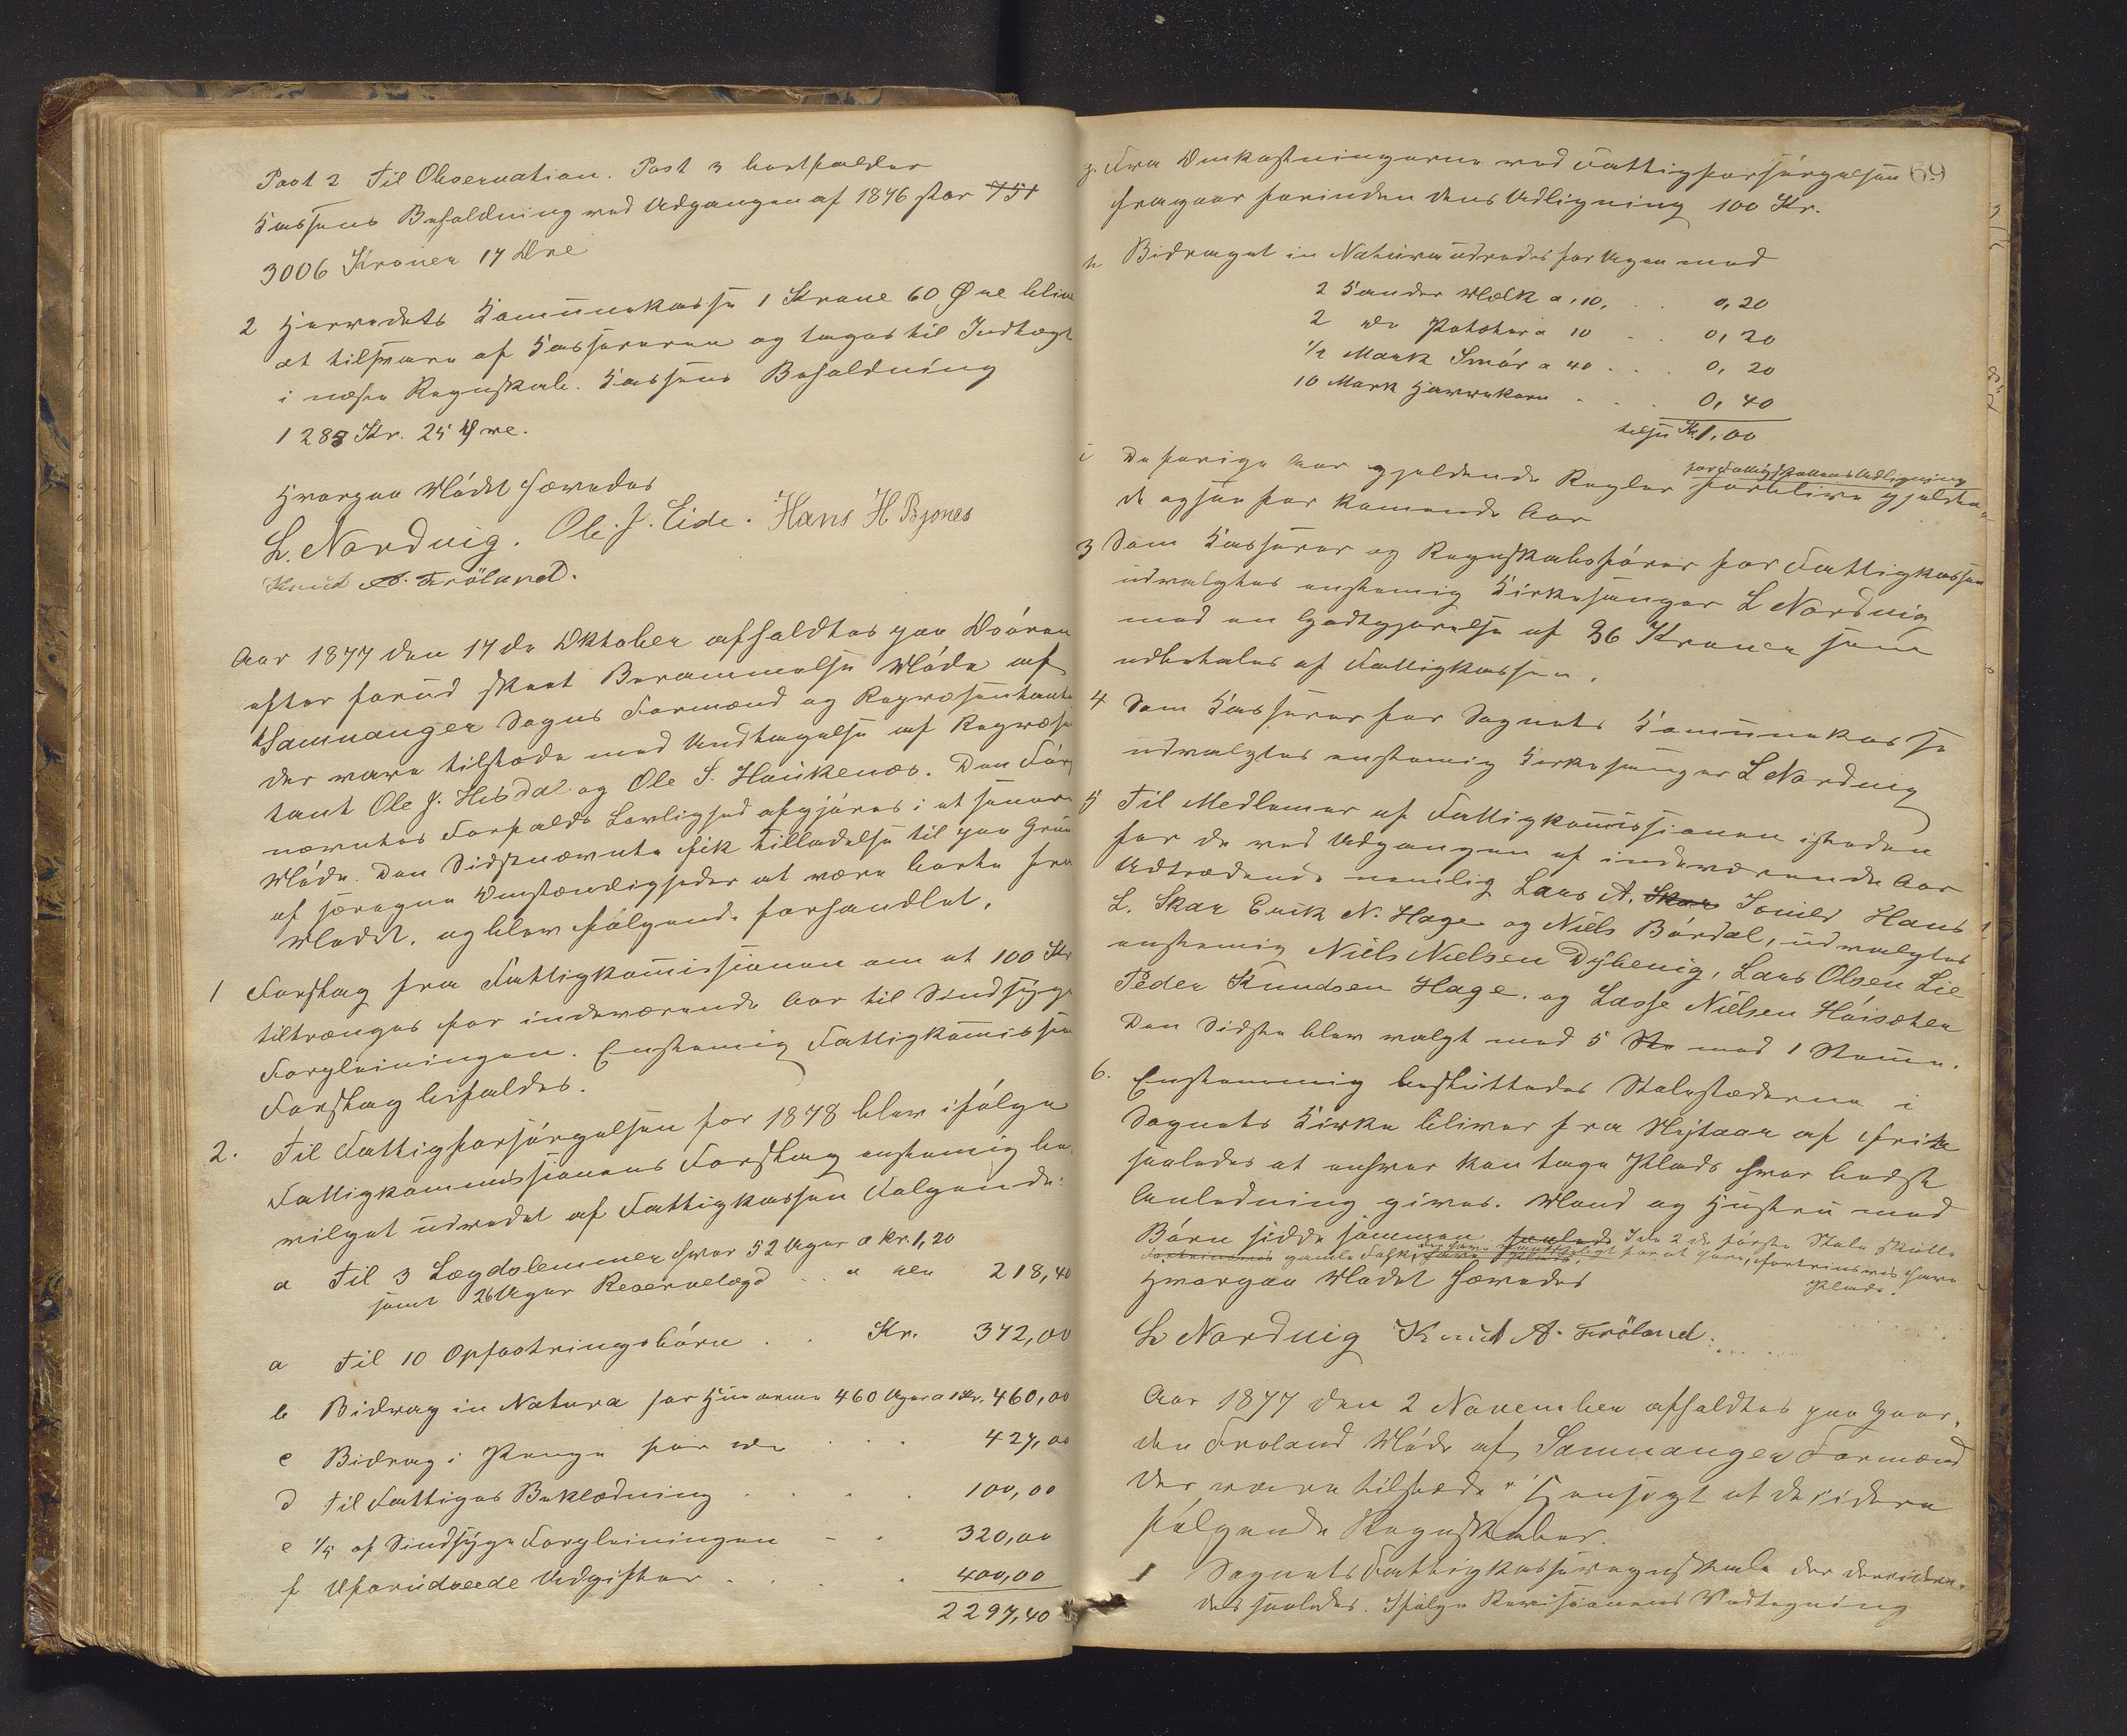 Post 2 Til Observation. Post 3 bortfalder
Kassens Beholdning ved Udgangen af 1876 stor 751
3006 Kroner 17 Øre
2 Herredets Komunekasse 1 Krone 60 Øre bliver
at tilsvare af Kassereren og tages til Indtægt
i næste Regnskab. Kassens Beholdning
1283 Kr. 25 Øre.
Hvorpaa Mödet hævedes
L. Nordvig. Ole J. Eide. Hans H Bjønes
Knud A. Fröland.
Aar 1877 den 17de Oktober afholdtes paa
efter forud skeet Berammelse Möde af
Samnanger Sogns Formænd og Repræsentanter
der vare tilstede med Undtagelse af Repræsen
tant Ole J. Hisdal og Ole S. Haukenæs. Den Først
nævntes Forfalds Lovlighed afgjøres i et senere
Möde. Den Sidstnævnte fik Tilladelse til paa Grund
af særegne Omstændigheder at være borte fra
Mödet. og blev følgende forhandlet.
1 Forslag fra Fattigkomissionen om at 100 Kr
tiltrænges for indeværende Aar til Sindssyge
Forpleiningen. Enstemig Fattigkomissionens
Forslag bifaldes.
2. Til Fattigforsörgelsen for 1878 blev ifölge
Fattigkommissionens Forslag enstemig be
vilget udredet af Fattigkassen Følgende:
a Til 3 Lægdslemmer hver 52 Uger a Kr. 1,20
samt 26 Uger Reservelægd .. a do 218,40
a Til 10 Opfostringsbörn . . Kr. 372,00
b Bidrag in Natura for Husarme 460 Uger a 1 Kr. 460,00
c Bidrag i Penge for do . . . 427,00
d Til Fattiges Beklædning . . . . 100,00
e 1/5 af Sindssyge Forpleiningen - . 320,00
f Uforudseede Udgifter . . . . 400,00
2297,40
69
g. Fra Omkostningerne ved Fattigforsörgelsen
fragaar forinden dens Udligning 100 Kr.
h Bidraget in Natura udredes for Ugen med
2 Kander Melk a ,10, . . 0,20
2 do Poteter a 10 . . 0,20
1/2 Mark Smör a 40 . . . 0,20
10 Mark Havrekorn . . . 0,40
tilsn Kr 1,00
i De forige Aar gjeldende Regler for Fattigskattens Udligning forblive gjelden=
de ogsaa for komende Aar
3 Som Kasserer og Regnskabsförer for Fattigkassen
udvalgtes enstemig Kirkesanger L Nordvig
med en Godtgjørelse af 36 Kroner som
udbetales af Fattigkassen.
4 Som Kasserer for Sognets Komunekasse
udvalgtes enstemig Kirkesanger L Nordvig
5 Til Medlemer af Fattigkomissionen isteden
for de ved Udgangen af indeværende Aar
Udtrædende nemlig Lars A. Skar Hans
L. Skar Erik N. Hage og Niels Bördal, udvalgtes
enstemig Niels Nielsen Dybevig, Lars Olsen Lie
Peder Knudsen Hage. og Lasse Nielsen Höisæter
Den Sidste blev valgt med 5 Ste mod 1 Steme.
6. Enstemmig besluttedes Stolestaderne i
Sognets Kirke bliver fra Nytaar af frie
saaledes at enhver kan tage Plads hvor bedst
Anledning gives. Mand og Hustru med
Börn sidde sammen saaledes I de 2 de förste Stole skulle
gamle Folk, der have vanskeligt for at høre, fortrinsvis have
Plads.
Hvorpaa Mödet hævedes
L Nordvig Knud A. Fröland.
Aar 1877 den 2 November afholdtes paa Gaar=
den Froland Möde af Samnanger Formænd
der vare tilstede i Hensigt at decidere
følgende Regnskaber.
1 Sognets Fattigkasseregnskab der decidere=
des saaledes. Ifølge Revisionens Vedtegning